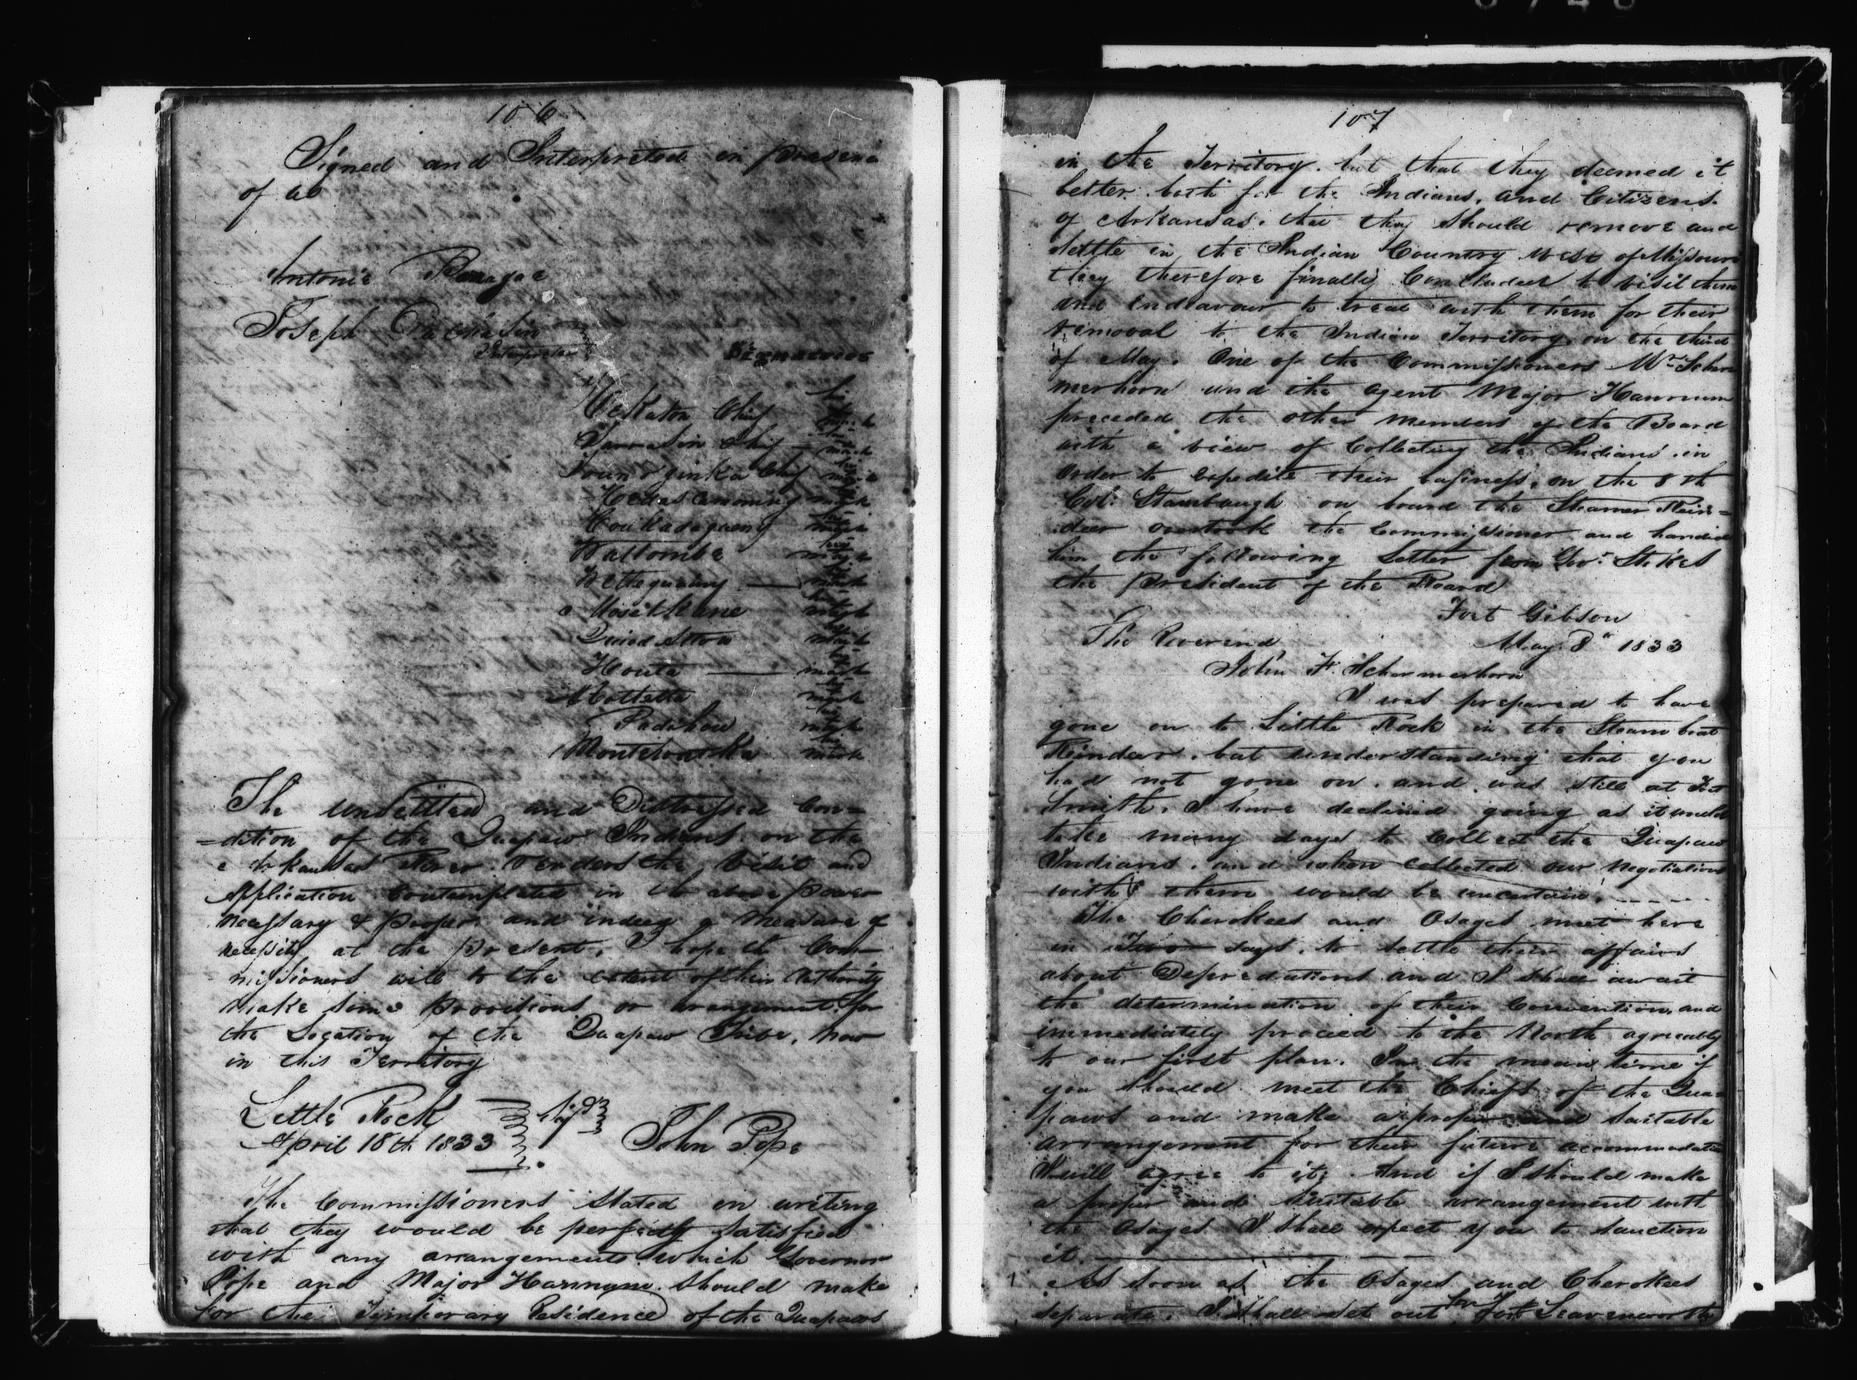 106
Signed and Interpreted in presence
of us
Antonie
Joseph
Interpreter
Signatures
Heckaton Chief his mark
Sarrasin Chief his mark
Chief his mark
his mark
his mark
his mark
his mark
his mark
his mark
Houta his mark
his mark
his mark
his mark
The unsettled and Distressed Con-
-dition of the Quapaw Indians on the
Arkansas River renders the visit and
Application Contemplated in the above power
necessary & proper and indeed a measure of
necessity at the present. I hope the Com-
missioners will to the extent of their Authority
make some provisions or arangement for
the Location of the Quapaw Tribe, now
in this Territory
Little Rock
April 18th 1833
sigd
John Pope
The Commissioners stated in writing
that they would be perfectly satisfied
with any arrangements which Governor
Pope and Major Harmum should make
for the Temporary Residence of the Quapaws
107
in the Territory. but that they deemed it
better both for the Indians, and Citizens
of Arkansas, that they should remove and
settle in the Indian Country West of Missouri
they therefore finally Concluded to visit them
and Endeavour to treat with them for their
removal to the Indian Territory on the third
of May. One of the Commissioners Mr Scher
merhorn and the agent Major Hannum
preceded the other members of the Board
with a view of Collecting the Indians in
order to expedite their business, on the 8th
Col. Stambaugh on board the Steamer Rein=
deer overtook the Commissioner and handed
him the following Letter from Gov. Stokes
the President of the Board
Fort Gibson
The Reverend May 8th 1833
John F. Schermerhorn
I was prepared to have
gone on to Little Rock in the Steam boat
Reindeer, but understanding that you
had not gone on, and was still at Fort
Smith, I have declined going as it would
take many days to Collect the Quapaw
Indians, and when collected our negotiations
with them would be uncertain.
The Cherokees and Osages meet here
in Two days. to settle their affairs
about Depredations and I shall await
the determination of their Convention, and
immediately proceed to the North agreeably
to our first plan. In the mean time if
you should meet the Chiefs of the Qua=
paws and make a proper and suitable
arrangement for their future accommodation
I will agree to it. And if I should make
a proper and suitable arrangement with
the Osages I shall expect you to sanction
it.
As soon as the Osages and Cherokees
separate, I shall set out for Fort Leavenworth